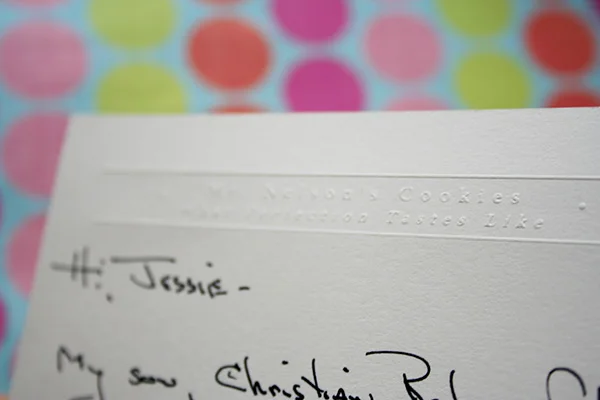 Mr. Nelson's Cookies
What Perfection Tastes Like
Hi, Jessie -
My son, Christian,